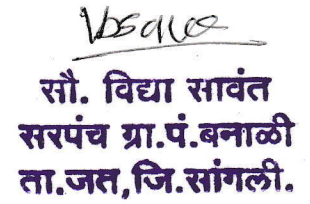 सौ. विद्या सावंत
सरपंच ग्रा.पं.बनाळी
ता.जत,जि.सांगली.